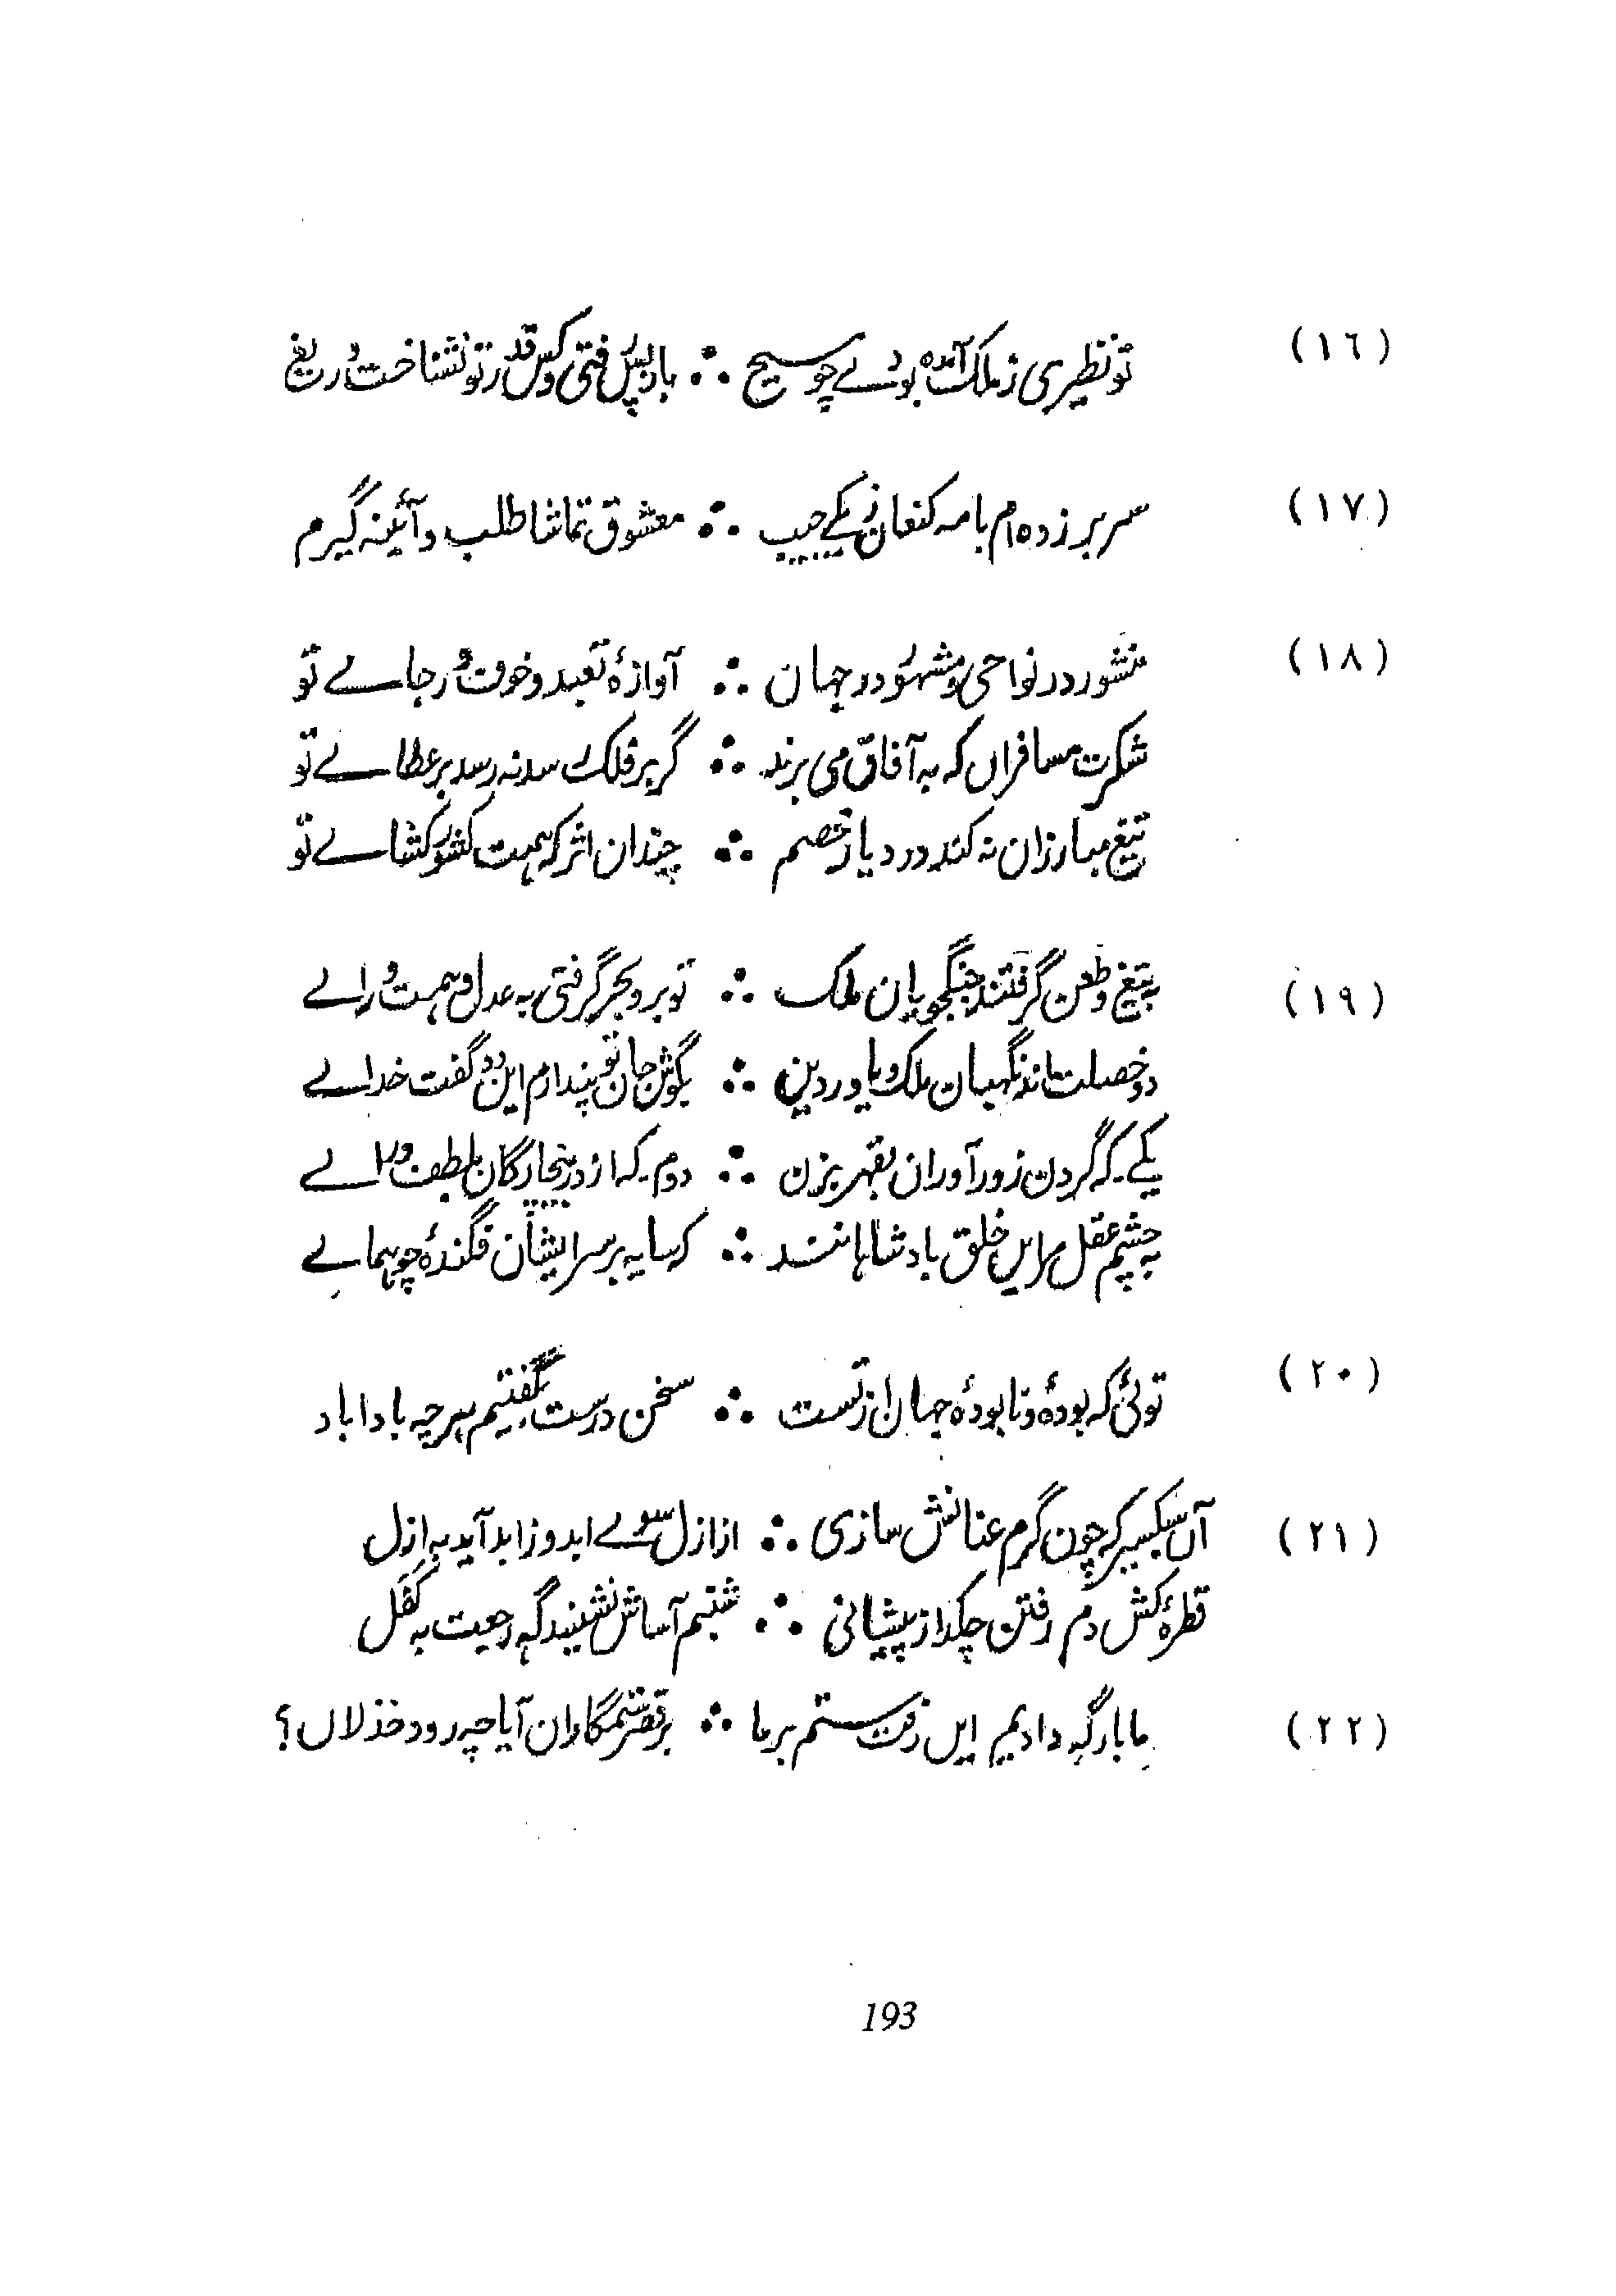 (١٦) تو نظیری ز ملک آمده بودے چو مسیح ∴ باز پس رفتی و کس قدر تو نشناخت دریغ
(١٧) سر بر زده ام با مه کنعان ز یکے جیب ∴ معشوق تماشا طلب و آئینه گیرم
(١٨) منشور در نواحی و مشہور در جہان ∴ آوازۂ تعبد و خوف و رجاے تو
شکرت مسافراں که به آفاق می برند ∴ گر بر فلک رسد نه رسد بر عطاے تو
تیغ مبارزان نه کند در دیار خصم ∴ چندان اثر که ہمت کشور کشاے تو
(١٩) به تیغ و طعن گرفتند جنگجویان ملک ∴ تو بر و بحر گرفتی به عدل و ہمت و راے
دو خصلت اند نگہبان ملک و یاور دین ∴ بگوش جان تو پندارم این دو گفت خداے
یکے که گردن زور آوران بقہر بزن ∴ دوم که از در بیچارگان بلطف در اے
به چشم عقل مر ایں خلق بادشاہانند ∴ که سایه بر سر ایشان فگندۂ چو ہماے
(٢٠) توئی که بودۂ و نابودۂ جہان از تست ∴ سخن درست بگفتیم ہر چه بادا باد
(٢١) آں سبک سیر که چون گرم عنانش سازی ∴ از ازل سوے ابد وز ابد آید به ازل
قطرۂ کش دم رفتن چکد از پیشانی ∴ شبنم آساش نشیند گہ رجعت به کفل
(٢٢) ما بارگہ دادیم ایں رفت ستم بر ما ∴ بر قصر ستمگاران آیا چه رود خذلاں؟
193